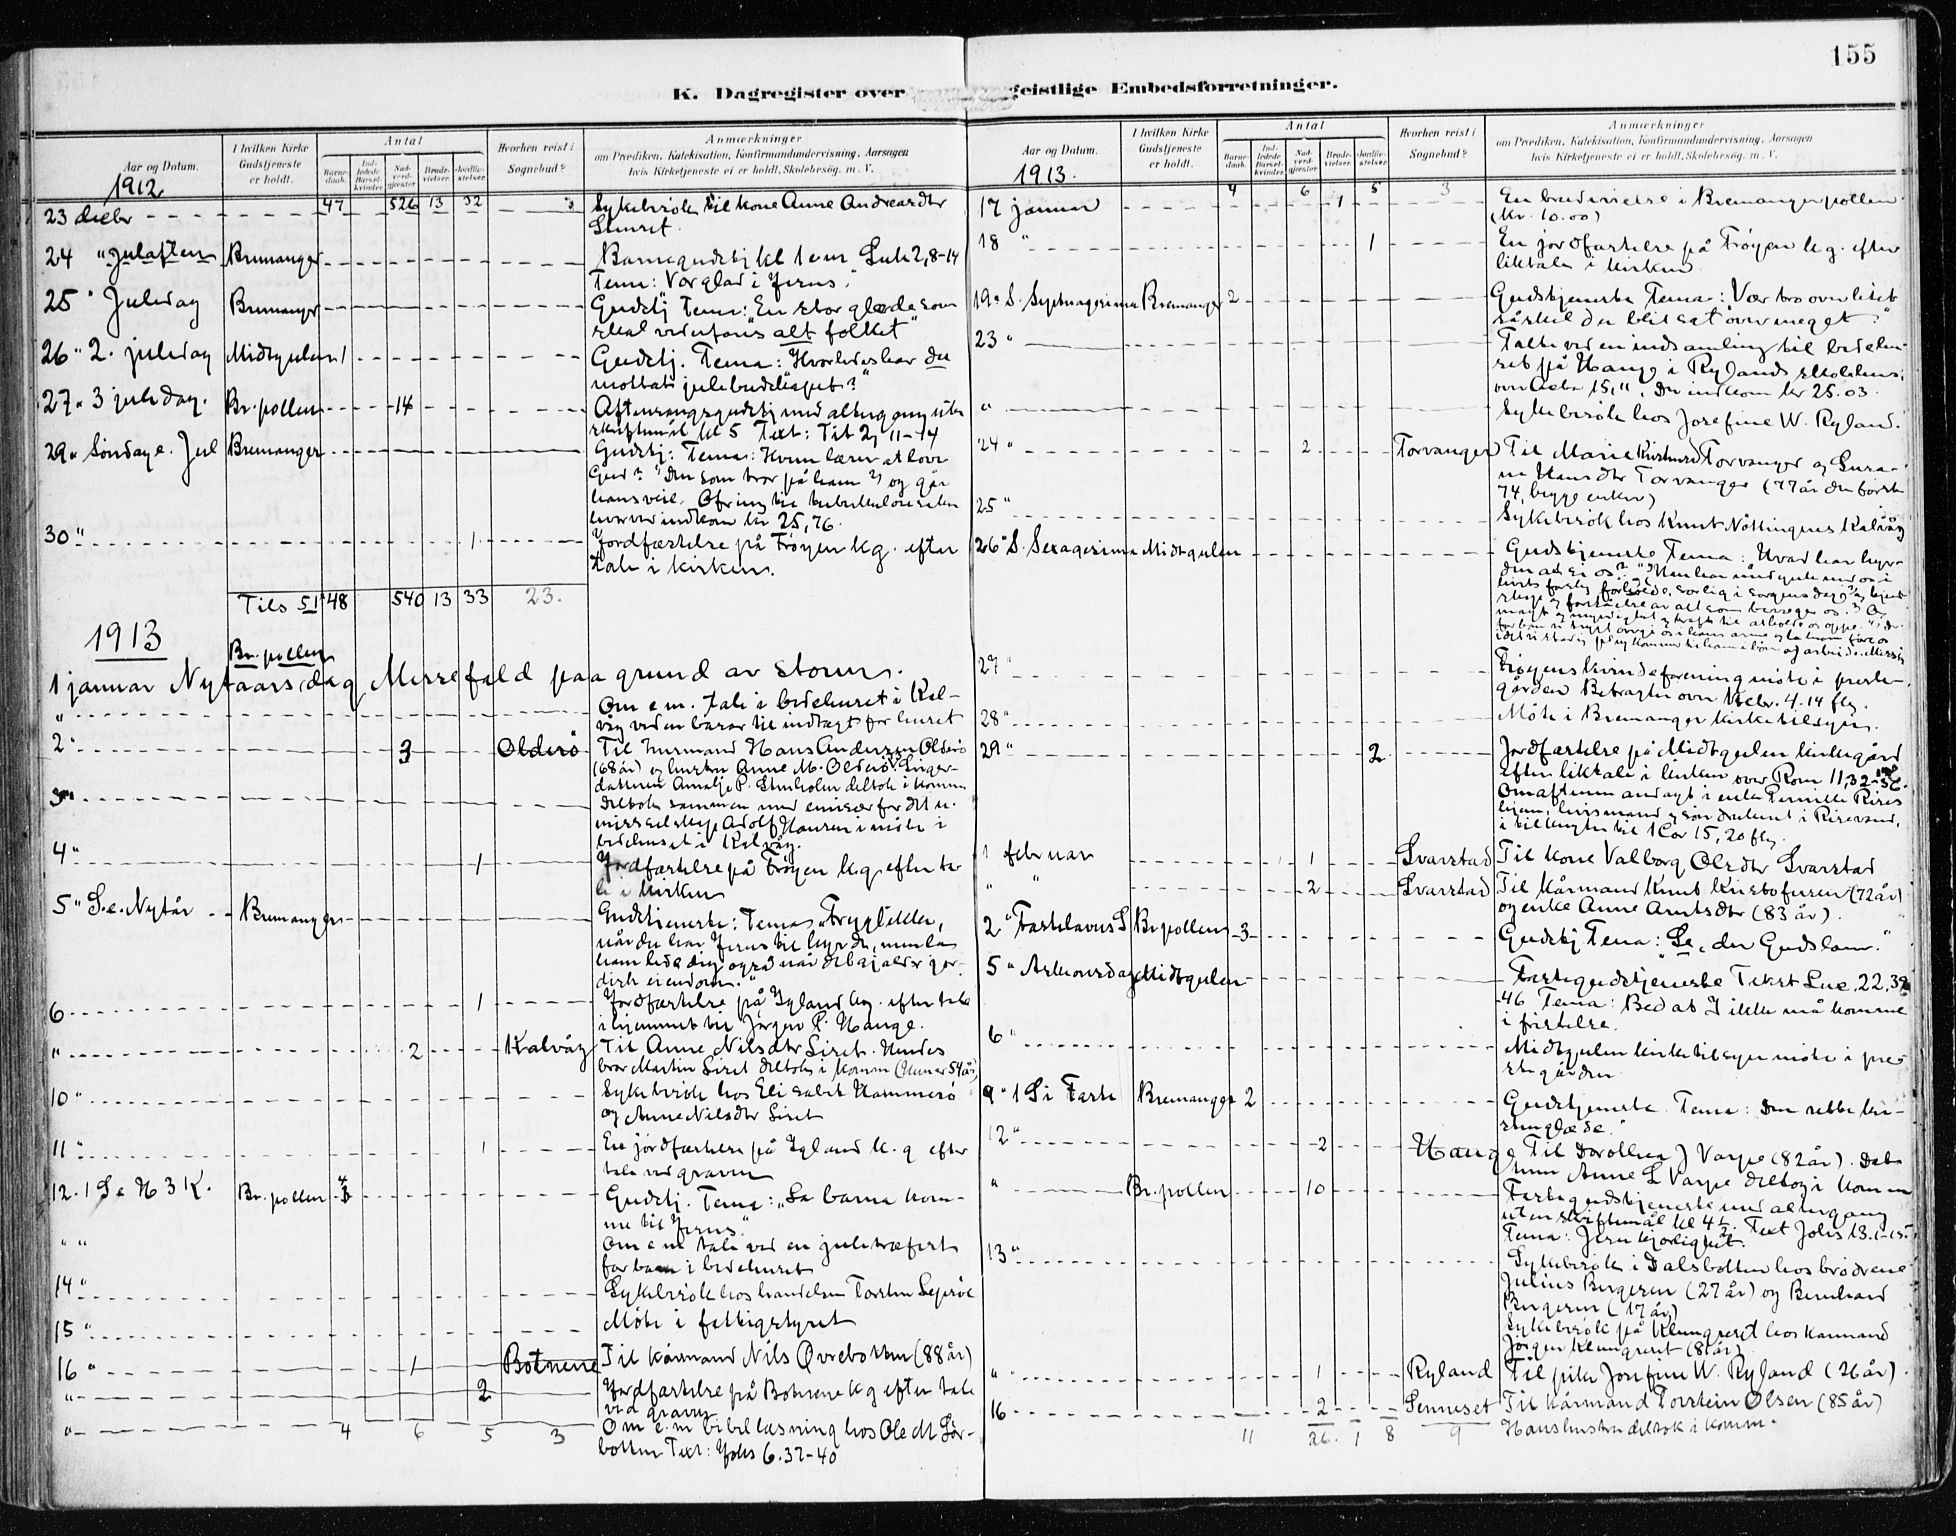 155
K. Dagregister over geistlige Embedsforretninger.
Aar og Datum. I hvilken Kirke Gudstjeneste er holdt. Antal Hvorhen reist i Sognebud? Anmærkninger
Barne-daab. Ind-ledede Barsel-kvinder. Nad-verd-gjester Brude-vielser. Jordfæ-stelser om Prædiken, Katekisation, Konfirmandundervisning, Aarsagen
hvis Kirketjeneste ei er holdt, Skolebesög. m. V.
1912
23 decbr 47 526 13 32 3 Sykebesök til kone Anne Andreasdtr
24 " Julaften Bremanger Barnegudstj kl 1 em Luk 2, 8-14
Tema: Vor glæd i Jesus.
25 " Juledag Bremanger Gudstj Tema: "En stor glæde som
skal vederfares alt folket"
26 " 2. juledag Midtgulen 1 Gudstj. Tema: "Hvorledes har du
mottat julebudskapet?"
27 " 3 juledag. Br.pollen 14 Aftensangsgudstj med altergang uten
skriftemål kl 5 Text: Tit 2, 11-14
29 " Söndag e. Jul Bremanger Gudstj: Tema: Hvem lærer at love
Gud? 1) Den som tror på ham 2) og går
hans veie. Ofring til tuberkulosesaken
hvorved indkom kr 25,76.
30 " 1 Jordfæstelse på Fröyen kg. efter
tale i kirken.
Tils 51 48 540 13 33 23.
1913
Br. pollen
1 januar Nytaarsdag Messefald paa grund av storm.
" Om em. tale i bedehuset i Kal-
våg ved en basar til indtægt for huset
2 " 3 Olderö Til husmand Hans Andersen Olderö
(68 år) og hustru Anne M. Olderö.
3 " deltok sammen med emissær for det n.
misselskap Adolf Hansen i möte i
bedehuset i Kalvåg.
4 " 1 Jordfæstelse på Fröyen kg. efter ta-
le i kirken
5 " S. e. Nytår Bremanger Gudstjeneste: Tema: "Frygt ikke,
når du har Jesus til hyrde, men la
ham lede dig også når det gjælder jor-
disk eiendom."
6 1 Jordfæstelse på Igland kg. efter tale
i hjemmet til Jörgen P. Hauge.
" 2 Kalvåg Til Anne Nilsdtr Liset. Hendes
bror Martin Liset deltok i komm (Hun er 54 år)
10 " Sykebesök hos Elisabet Hammersö
og Anne Nilsdtr Liset
11 " 1 En jordfæstelse på Igland k.g efter
tale ved graven
12. 1 S e H 3 K. Br. pollen 4 Gudstj. Tema: "La barna kom-
me til Jesus."
" " Om em tale ved en juletræfest
for barn i bedehuset
14 " Sykebesök hos handelsm Torsten
15 " Möte i fattigstyret
16 " 1 Botnene Til kårmand Nils Övrebotten (88 år)
" 2 Jordfæstelse på Botnene kg efter tale
ved graven
" 4 6 5 3 Om e.m bibellæsning hos Ole
botten Text: Johs 6.37-40
Aar og Datum. I hvilken Kirke Gudstjeneste er holdt. Antal Hvorhen reist i Sognebud? Anmærkninger
Barne-daab. Ind-ledede Barsel-kvinder. Nad-verd-gjester Brude-vielser. Jordfæ-stelser om Prædiken, Katekisation, Konfirmandundervisning, Aarsagen
hvis Kirketjeneste ei er holdt, Skolebesög. m. V.
1913.
4 6 5 3
17 januar 1 En brudevielse i Bremangerpollen
(kr. 10.00)
18 " 1 En jordfæstelse på Fröyen kg. efter
liktale i kirken
19 " S. Septuagesima Bremanger 2 Gudstjeneste Tema: "Vær tro over litet
så skal du bli sat over meget."
23 " Talte ved en indsamling til bedehu-
set på Hauge i Rylands skolehus
over 15,11. Der indkom kr 25.03.
" Sykebesök hos Josefine W. Ryland.
24 " 2 Torvanger Til Marie Torvanger og
Hansdtr Torvanger (77 år den förste
74, begge enker)
25 " Sykebesök hos Knut Kalvåg
26 " S. Sexagesima Midtgulen Gudstjeneste Tema: Hvad har hyr-
27 " Fröyens kvindeforening möte i preste-
gården Betragtn over Hebr. 4.14 flg.
28 " Möte i Bremanger kirketilsyn.
29 " 2 Jordfæstelse på Midtgulen kirkegård
efter liktale i kirken over Rom 11,32-36.
Om aftenen andagt i enke Pernille Rises
hjem, hvis mand og sön druknet i Risevand,
i tilknytn til 1 Cor 15, 20 flg.
1 februar 1 Svarstad Til kone Valborg Olsdtr Svarstad
" " 2 Svarstad Til kårmand Knut Kristofersen (72 år)
og enke Anne Arntsdtr (83 år).
2 " Fastelavns S Br pollen 3 Gudstj. Tema: "Se, der Guds lam."
5 " Askeonsdag Midtgulen Fastegudstjeneste Tekst Luc. 22,39-
46 Tema: Bed at I ikke må komme
i fristelse.
6 " Midtgulen kirketilsyn möte i pre-
stegården
9 " 1 S i Faste Bremanger 2 Gudstjeneste. Tema: Den rette kri-
stenglæde."
12 " 2 Hauge Til Dorothea J Varpe (82 år). Dat-
hun Anne L Varpe deltog i komm
" Br.pollen 10 Fastegudstjeneste med altergang
uten skriftemål kl 4½. Text Johs 13.1-15.
Tema: Jesu kjærlighet.
13 " Sykebesök i Dalsbotten hos brödrene
Julius Birgersen (27 år) og Bernhard
Birgersen (17 år)
Sykebesök på hos kårmand
Jörgen (81 år)
" 1 Ryland Til pike Josefine W. Ryland (26 år).
16 2 Senneset Til Kårmand Torstein Olsen (85 år)
11 26. 1 8 9 Hans hustru deltok i komm.